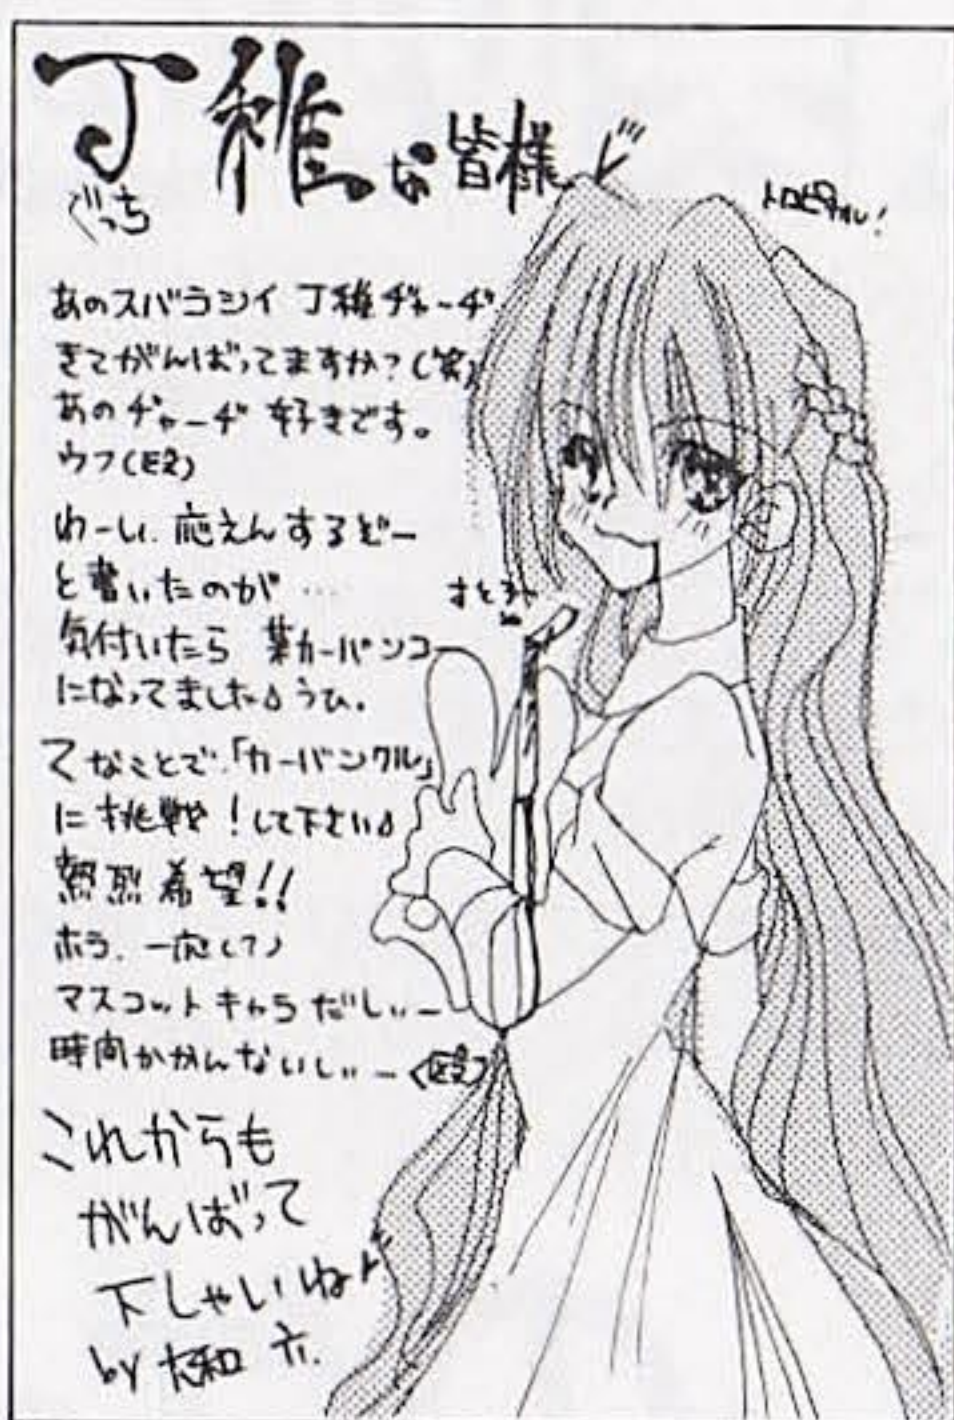 丁稚な皆様
ぐっち
トロピカル!
あのスバラシイ 丁稚ヂャーヂ
きてがんばってますか?(笑)
あのヂャーヂ 好きです。
ウフ(爆)
わーい、応えんするぞー
と書いたのが…
気付いたら 業カーバンコー
になってました♪うひ。
さとる
てなことで、「カーバンクル」
に挑戦!して下さい♪
熱烈希望!!
ホラ、一応(?)
マスコットキャラだしぃー
時間かかんないしぃー
これからも
がんばって
下しゃいね♪
by 大和